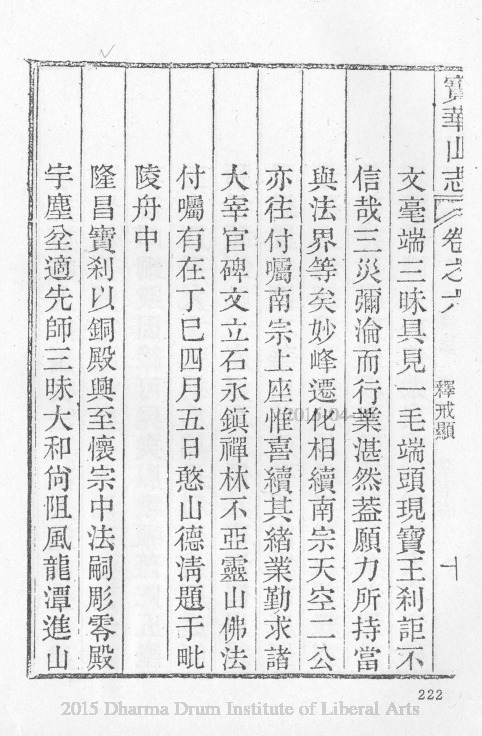 寶華山志
卷之六
釋戒顯
十
文毫端三昧具見一毛端頭現寶王刹詎不
信哉三災彌淪而行業湛然葢願力所持當
與法界等矣妙峰遷化相續南宗天空二公
亦往付囑南宗上座惟喜續其緒業勤求諸
大宰官碑文立石永鎭禪林不亞靈山佛法
付囑有在丁巳四月五日憨山德淸題于毗
陵舟中
隆昌寶刹以銅殿興至懷宗中法嗣彫零殿
宇塵坌適先師三昧大和尙阻風龍潭進山
222
2015 Dharma Drum Institute of Liberal Arts